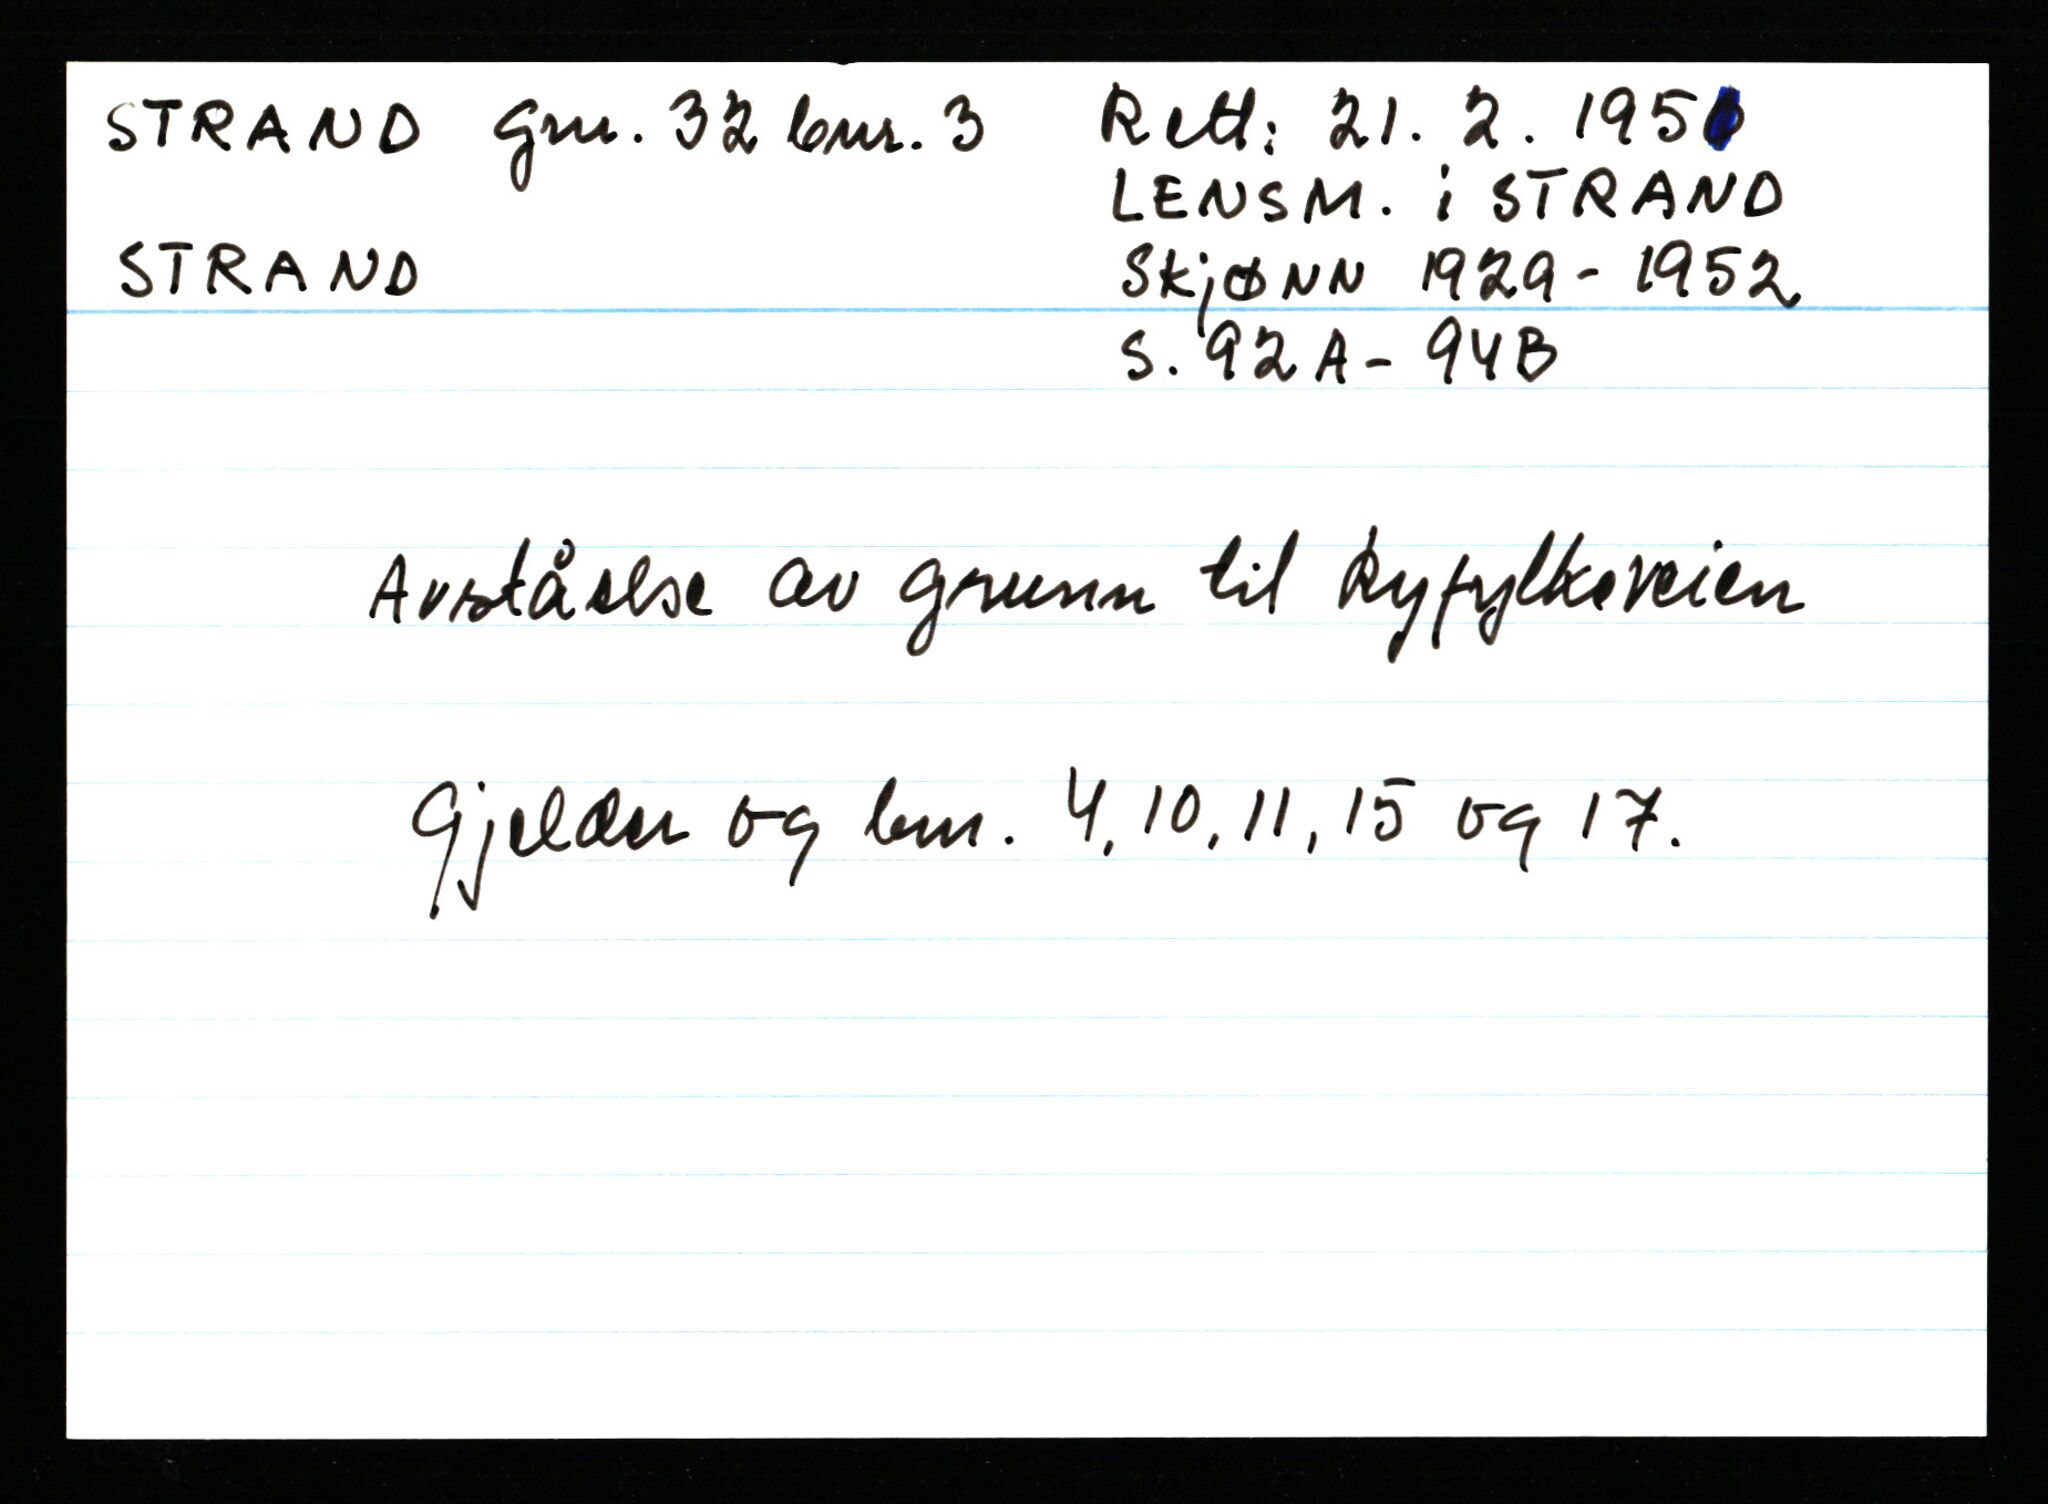 STRAND gnr. 32 bnr. 3
STRAND
Rett: 21. 2. 1951
LENSM. i STRAND
SkjøNN 1929 - 1952
S. 92A - 94B
Avståelse av grunn til Ryfylkeveien
Gjelder og bnr. 4, 10, 11, 15 og 17.